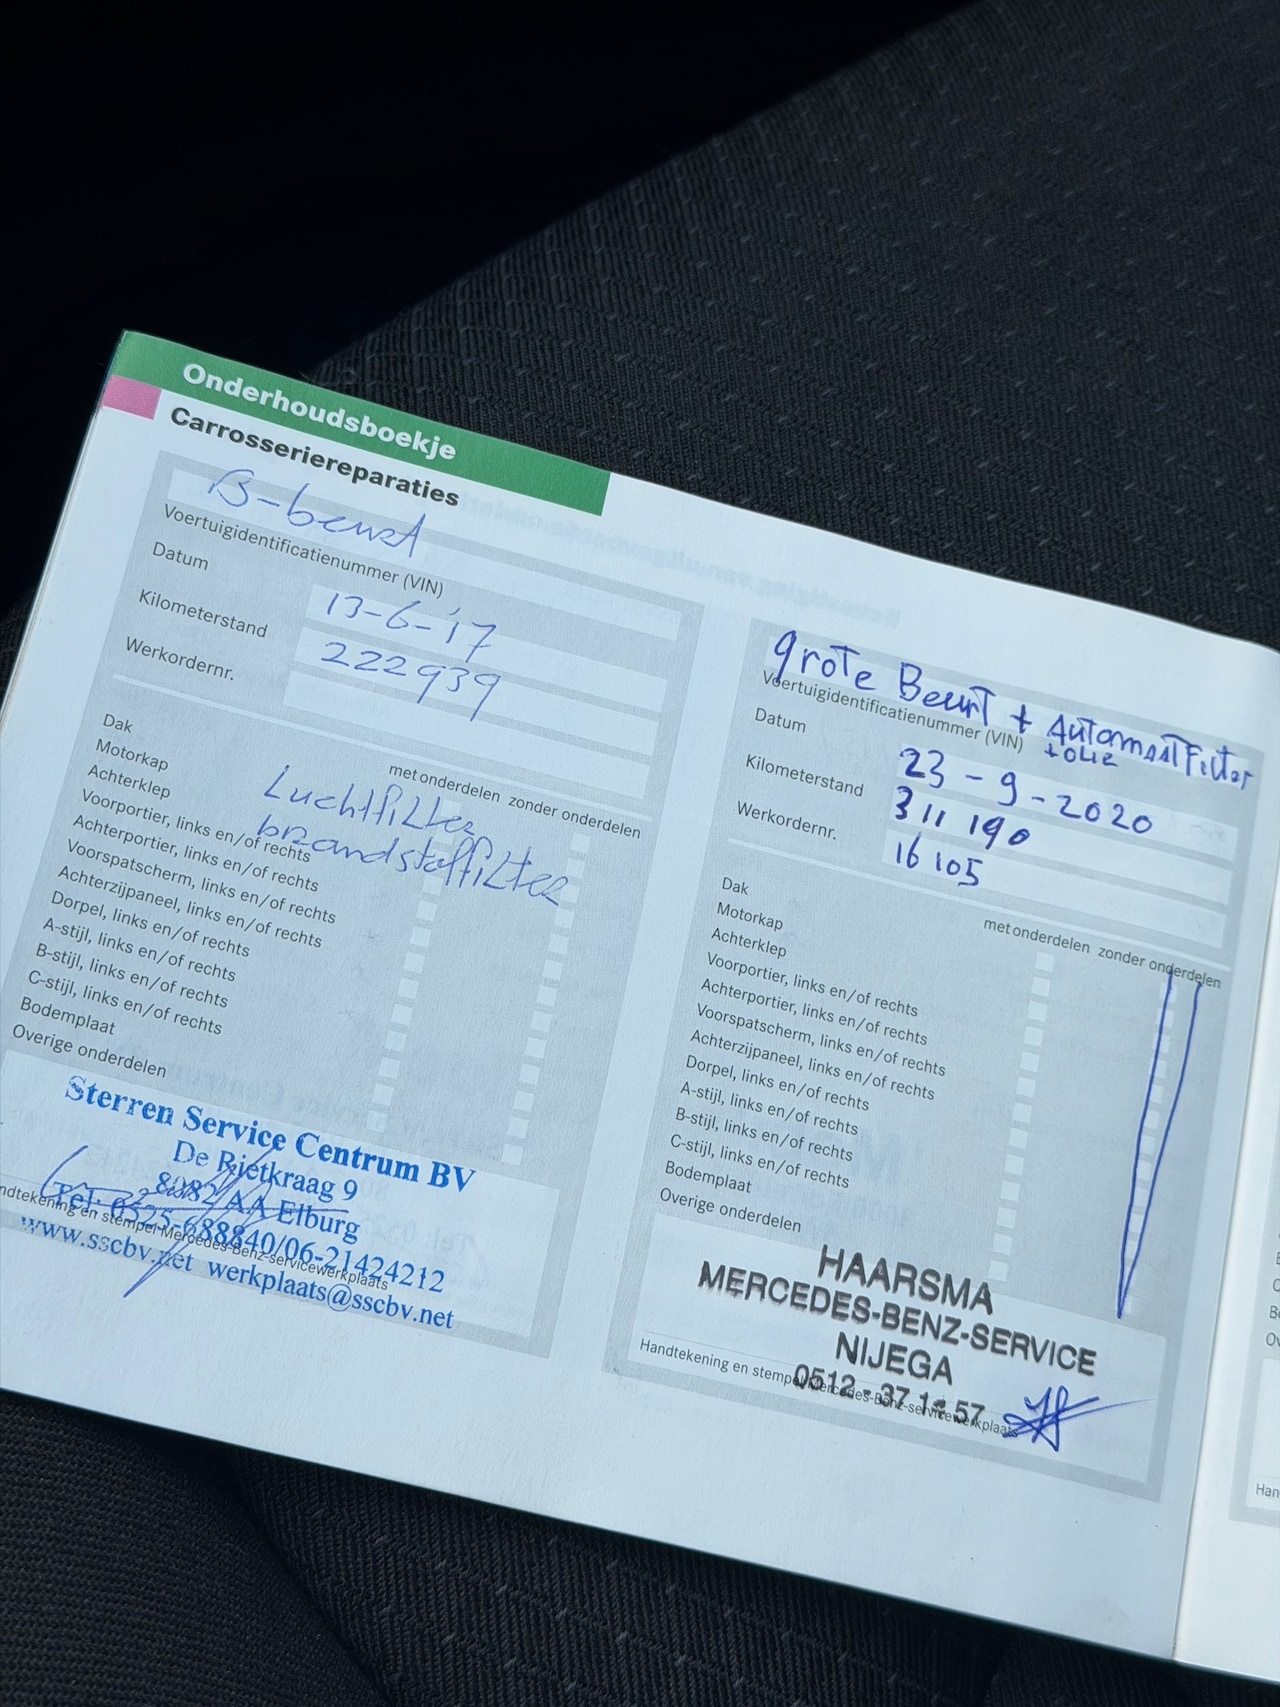 Onderhoudsboekje
Carrosseriereparaties
B-beurt
Voertuigidentificatienummer (VIN)
Datum
13-6-'17
Kilometerstand
222939
Werkordernr.
met onderdelen zonder onderdelen
Dak
Motorkap
Achterklep
Luchtfilter
Voorportier, links en/of rechts
brandstoffilter
Achterportier, links en/of rechts
Voorspatscherm, links en/of rechts
Achterzijpaneel, links en/of rechts
Dorpel, links en/of rechts
A-stijl, links en/of rechts
B-stijl, links en/of rechts
C-stijl, links en/of rechts
Bodemplaat
Overige onderdelen
Sterren Service Centrum BV
De Rietkraag 9
8082 AA Elburg
Tel: 0525-688840/06-21424212
ndtekening en stempel Mercedes-Benz-servicewerkplaats
www.sscbv.net werkplaats@sscbv.net
grote Beurt + Automaatfilter
+ olie
Voertuigidentificatienummer (VIN)
Datum
23-9-2020
Kilometerstand
311190
Werkordernr.
16105
met onderdelen zonder onderdelen
Dak
Motorkap
Achterklep
Voorportier, links en/of rechts
Achterportier, links en/of rechts
Voorspatscherm, links en/of rechts
Achterzijpaneel, links en/of rechts
Dorpel, links en/of rechts
A-stijl, links en/of rechts
B-stijl, links en/of rechts
C-stijl, links en/of rechts
Bodemplaat
Overige onderdelen
HAARSMA
MERCEDES-BENZ-SERVICE
NIJEGA
0512 - 37 12 57
Handtekening en stempel Mercedes-Benz-servicewerkplaats
Han